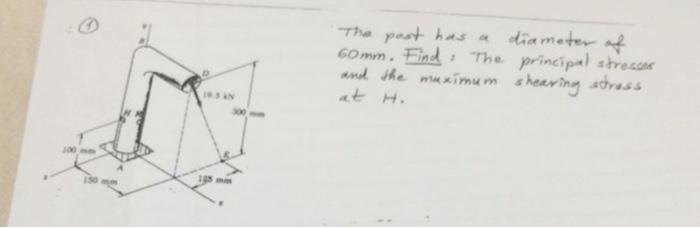 ①
The post has a diameter of
60mm. Find : The principal stresses
and the maximum shearing stress
at H.
y
B
D
19.5 kN
300 mm
H K
100 mm
E
A
150 mm
125 mm
z
x